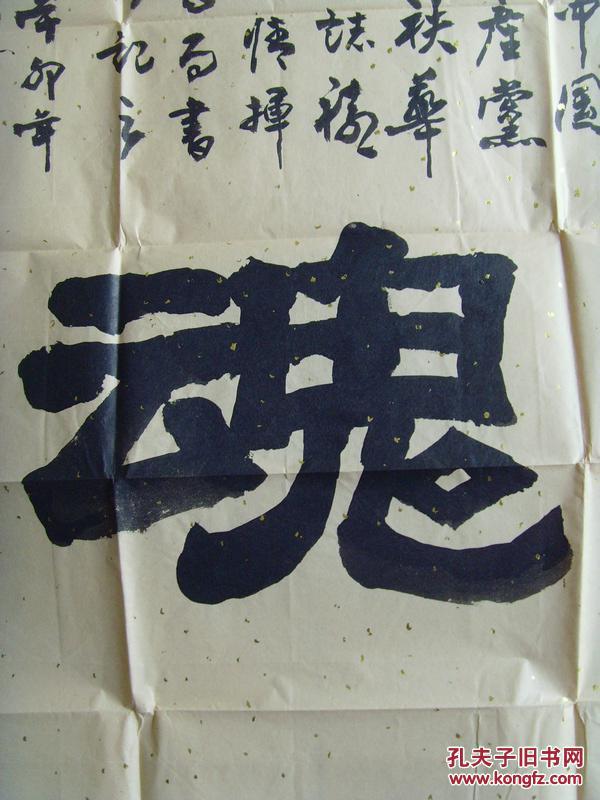 中國
產黨
秩華
誌
情揮
而書
記之
辛卯年
魂
孔夫子旧书网
www.kongfz.com